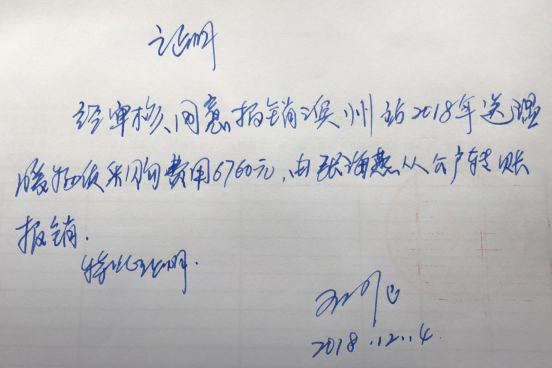 证明
经审核、同意报销澳州站2018年送温
暖物资采购费用6760元,由张海燕从公户转账
报销.
特此证明.
2018.12.4